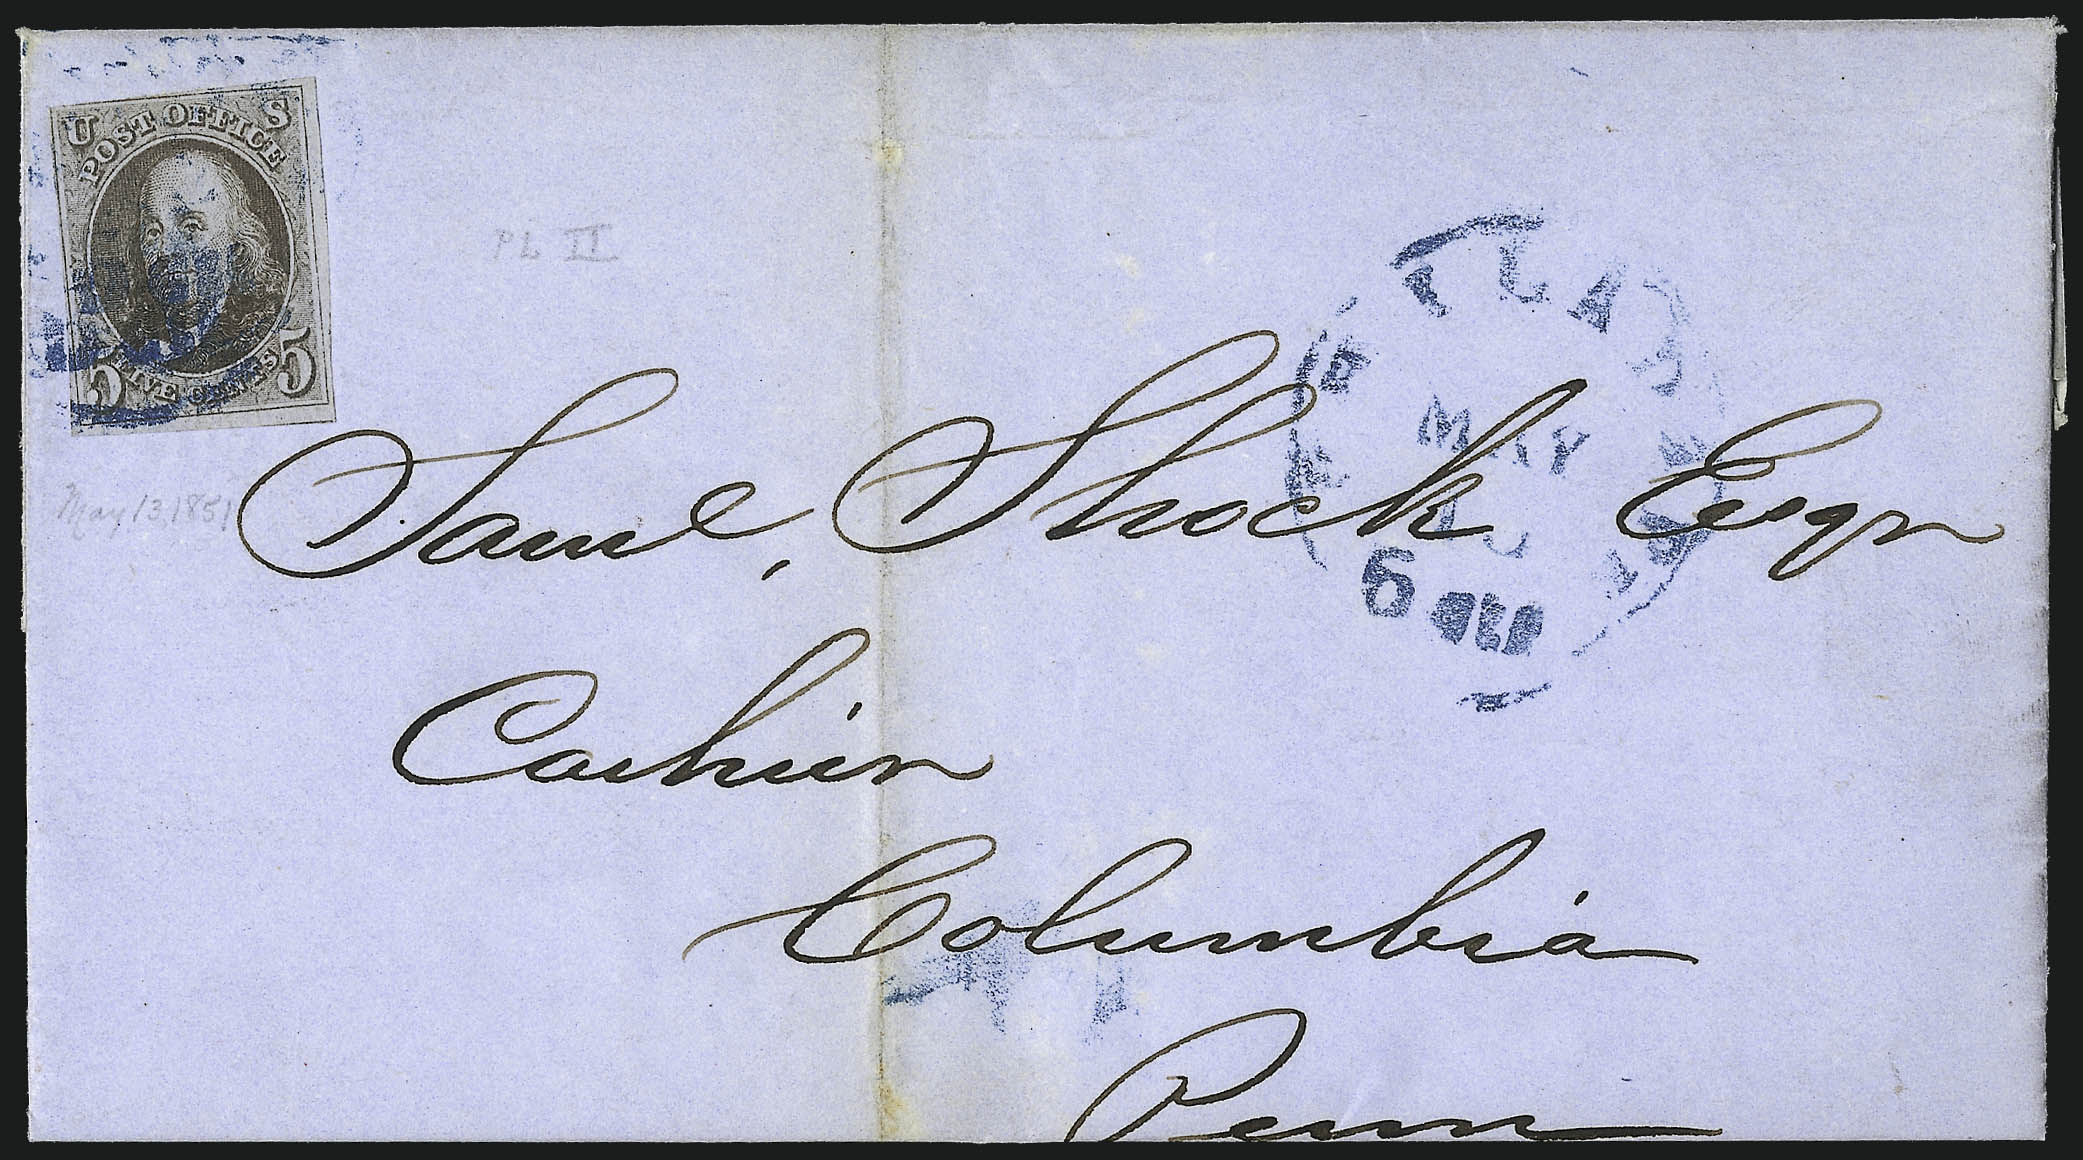 U S
POST OFFICE
5 FIVE CENTS 5
PL II
PHILADA
MAY
5 cts
May 13, 1851
Saml, Shock Esqr
Cashier
Columbia
Penn